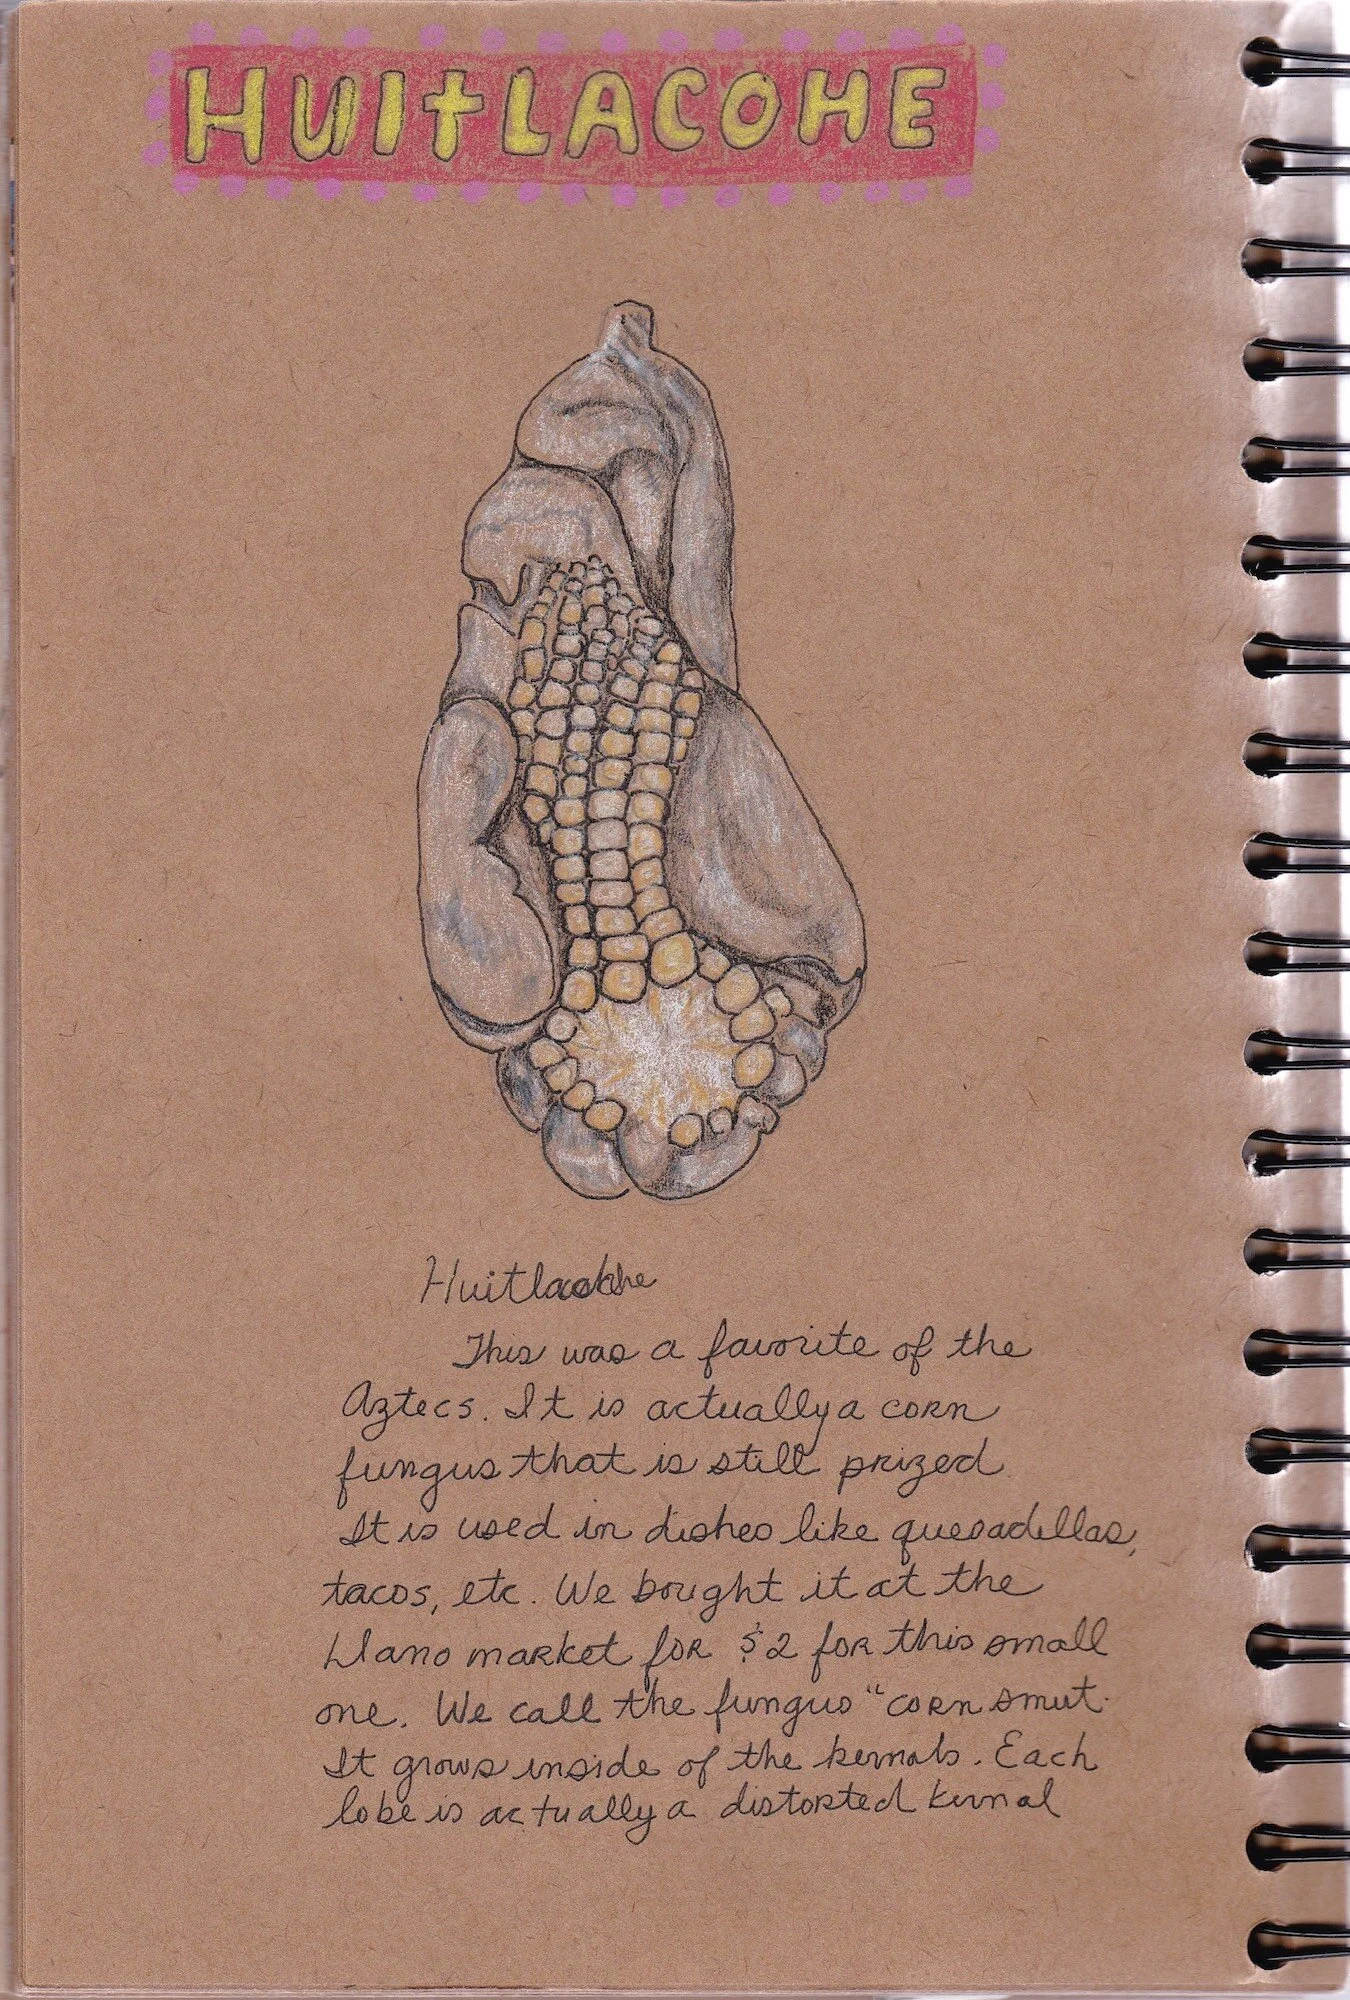 HUITLACOHE
Huitlacohe
This was a favorite of the
Aztecs. It is actually a corn
fungus that is still prized
It is used in dishes like quesadillas,
tacos, etc. We bought it at the
Llano market for $2 for this small
one. We call the fungus "corn smut.
It grows inside of the kernals. Each
lobe is actually a distorted kernal